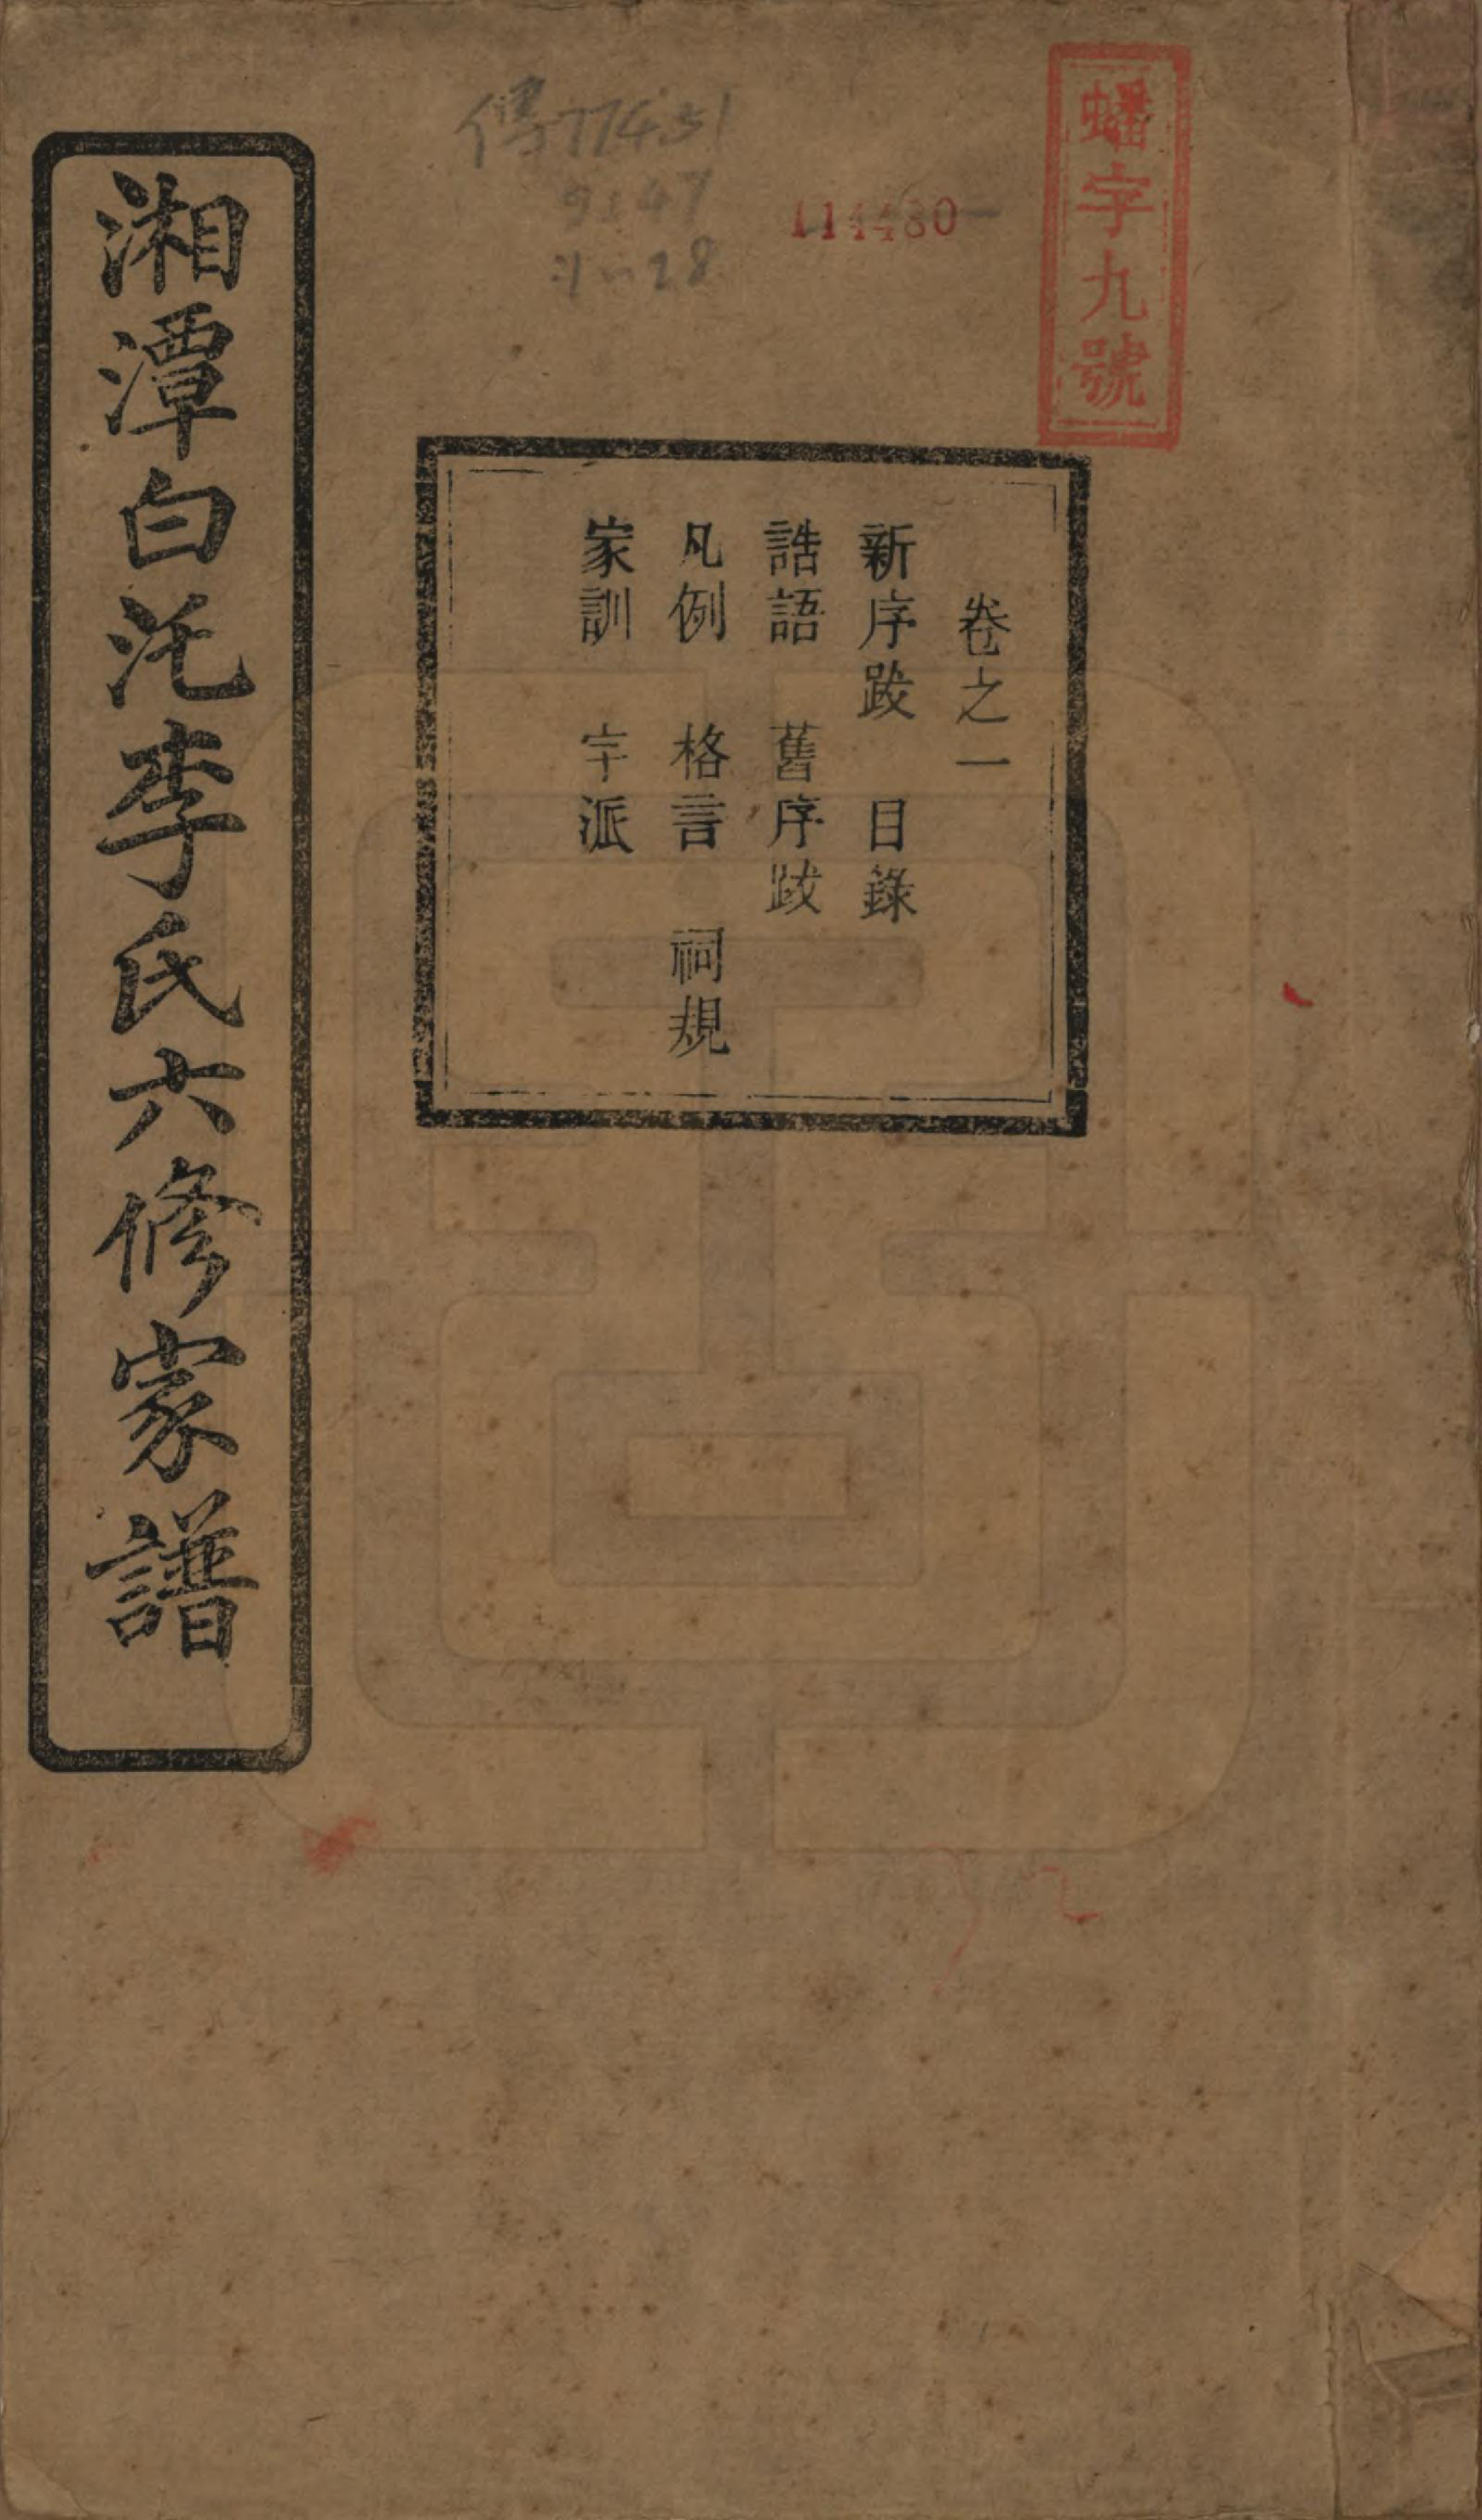 蟠字九號
傳774.31
9147
114480
卷之一
新序跋 目錄
誥語 舊序跋
凡例 格言 祠規
家訓 字派
湘潭白汑李氏六修家譜